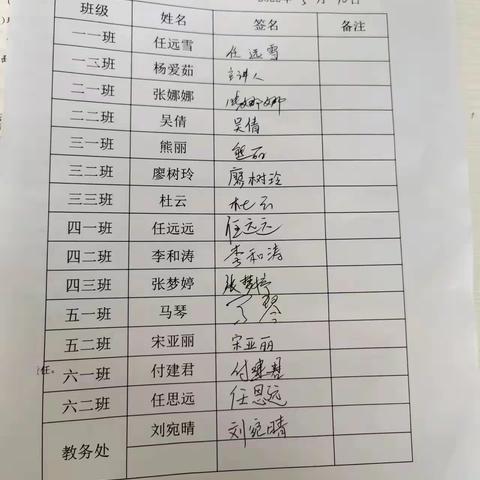 班级 姓名 签名 备注
一一班 任远雪 任远雪
一二班 杨爱茹 主讲人
二一班 张娜娜 张娜娜
二二班 吴倩 吴倩
三一班 熊丽 熊丽
三二班 廖树玲 廖树玲
三三班 杜云 杜云
四一班 任远远 任远远
四二班 李和涛 李和涛
四三班 张梦婷 张梦婷
五一班 马琴 马琴
五二班 宋亚丽 宋亚丽
六一班 付建君 付建君
六二班 任思远 任思远
教务处 刘宛晴 刘宛晴